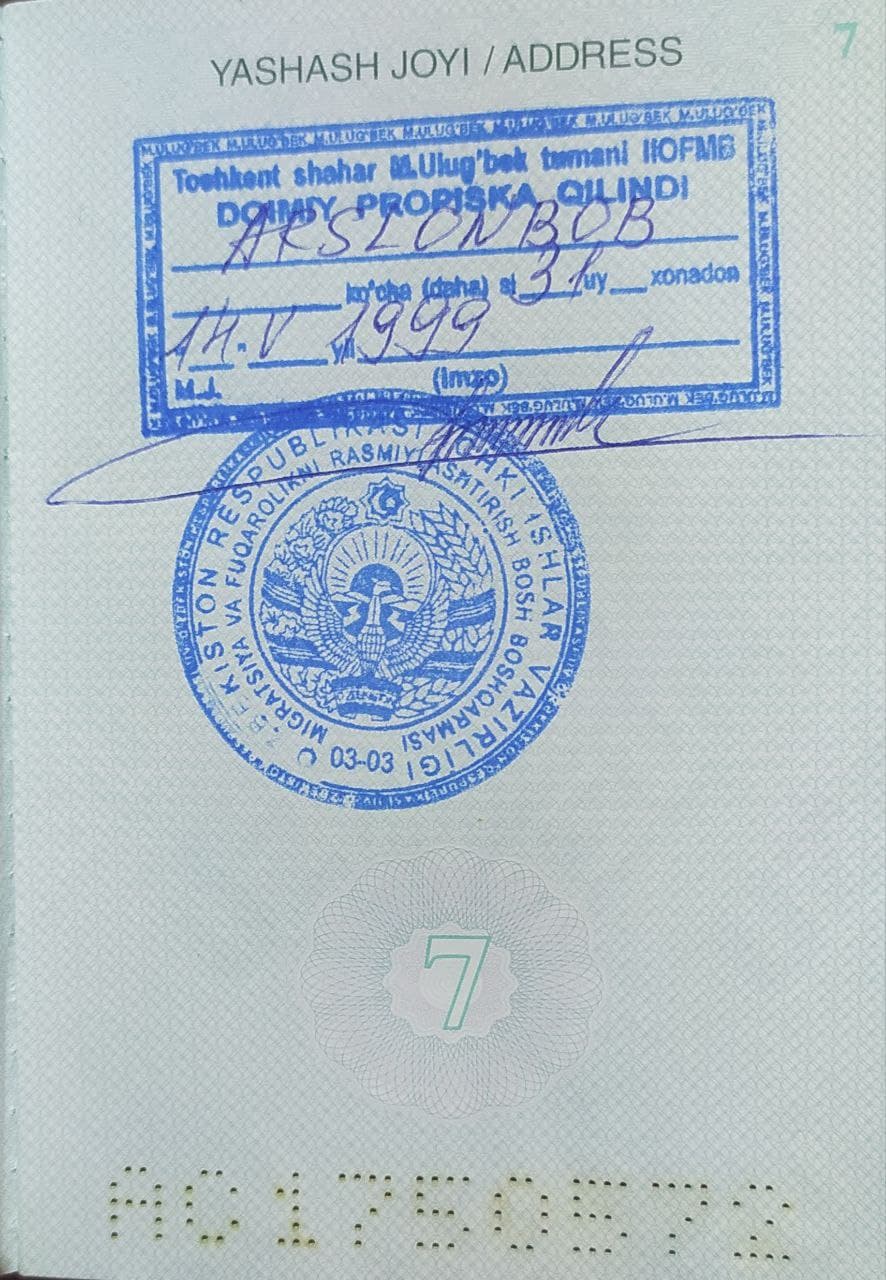 7
YASHASH JOYI / ADDRESS
M.ULUG'BEK M.ULUG'BEK M.ULUG'BEK M.ULUG'BEK M.ULUG'BEK M.ULUG'BEK M.ULUG'BEK
Toshkent shahar M.Ulug'bek tumani IIOFMB
DOIMIY PROPISKA QILINDI
ARSLONBOB
ko'cha (daha) si 31 uy xonadon
14. V 1999 yil
M.J. (imzo)
O'ZBEKISTON RESPUBLIKASI ICHKI ISHLAR VAZIRLIGI
MIGRATSIYA VA FUQAROLIKNI RASMIYLASHTIRISH BOSH BOSHQARMASI
03-03
7
AC1750572